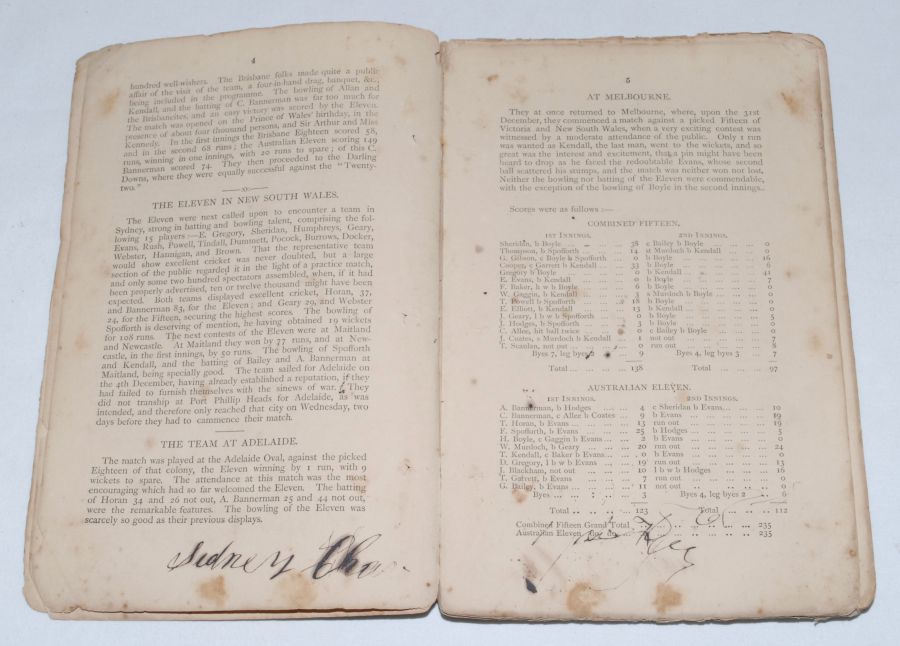 4
hundred well-wishers. The Brisbane folks made quite a public
affair of the visit of the team, a four-in-hand drag, banquet, &c.,
being included in the programme. The bowling of Allan and
Kendall, and the batting of C. Bannerman was far too much for
the Brisbaneites, and an easy victory was scored by the Eleven.
The match was opened on the Prince of Wales' birthday, in the
presence of about four thousand persons, and Sir Arthur and Miss
Kennedy. In the first innings the Brisbane Eighteen scored 58,
and in the second 68 runs; the Australian Eleven scoring 149
runs, winning in one innings, with 20 runs to spare; of this C.
Bannerman scored 74. They then proceeded to the Darling
Downs, where they were equally successful against the "Twenty-
two."
THE ELEVEN IN NEW SOUTH WALES.
The Eleven were next called upon to encounter a team in
Sydney, strong in batting and bowling talent, comprising the fol-
lowing 15 players:—E. Gregory, Sheridan, Humphreys, Geary,
Evans, Rush, Powell, Tindall, Dummett, Pocock, Burrows, Docker,
Webster, Hannigan, and Brown. That the representative team
would show excellent cricket was never doubted, but a large
section of the public regarded it in the light of a practice match,
and only some two hundred spectators assembled, when, if it had
been properly advertised, ten or twelve thousand might have been
expected. Both teams displayed excellent cricket, Horan, 37,
and Bannerman 83, for the Eleven; and Geary 29, and Webster
24, for the Fifteen, securing the highest scores. The bowling of
Spofforth is deserving of mention, he having obtained 19 wickets
for 108 runs. The next contests of the Eleven were at Maitland
and Newcastle. At Maitland they won by 77 runs, and at New-
castle, in the first innings, by 50 runs. The bowling of Spofforth
and Kendall, and the batting of Bailey and A. Bannerman at
Maitland, being specially good. The team sailed for Adelaide on
the 4th December, having already established a reputation, if they
had failed to furnish themselves with the sinews of war. They
did not tranship at Port Phillip Heads for Adelaide, as was
intended, and therefore only reached that city on Wednesday, two
days before they had to cammence their match.
THE TEAM AT ADELAIDE.
The match was played at the Adelaide Oval, against the picked
Eighteen of that colony, the Eleven winning by 1 run, with 9
wickets to spare. The attendance at this match was the most
encouraging which had so far welcomed the Eleven. The batting
of Horan 34 and 26 not out, A. Bannerman 25 and 44 not out,
were the remarkable features. The bowling of the Eleven was
scarcely so good as their previous displays.
Sydney
5
AT MELBOURNE.
They at once returned to Melbourne, where, upon the 31st
December, they commenced a match against a picked Fifteen of
Victoria and New South Wales, when a very exciting contest was
witnessed by a moderate attendance of the public. Only 1 run
was wanted as Kendall, the last man, went to the wickets, and so
great was the interest and excitement, that a pin might have been
heard to drop as he faced the redoubtable Evans, whose second
ball scattered his stumps, and the match was neither won not lost.
Neither the bowling nor batting of the Eleven were commendable,
with the exception of the bowling of Boyle in the second innings.
Scores were as follows:—
COMBINED FIFTEEN.
1ST INNINGS. 2ND INNINGS.
Sheridan, b Boyle ... 38 c Bailey b Boyle ... 0
Thompson, b Spofforth ... 14 st Murdoch b Kendall ... 0
G. Gibson, c Boyle b Spofforth ... 0 b Boyle ... 16
Cooper, c Garrett b Kendall ... 33 b Boyle ... 6
Gregory b Boyle ... 0 b Kendall ... 41
E. Evans, b Kendall ... 0 b Boyle ... 7
F. Baker, h w b Boyle ... 6 b Boyle ... 0
W. Gaggin, b Kendall ... 3 s Murdoch b Boyle ... 0
T. Powell b Spofforth ... 18 b Boyle ... 0
E. Elliott, b Kendall ... 13 b Kendall ... 0
J. Geary, l b w b Spofforth ... 0 b Boyle ... 5
J. Hodges, b Spofforth ... 3 b Boyle ... 0
T. Allee, hit ball twice ... 0 c Bailey b Boyle ... 0
J. Coates, s Murdoch b Kendall 1 not out ... 7
T. Scanlan, not out ... 0 run out ... 8
Byes 7, leg byes 2 ... 9 Byes 4, leg byes 3 7
Total ... 138 Total ... 97
AUSTRALIAN ELEVEN.
1ST INNINGS. 2ND INNINGS.
A. Bannerman, b Hodges ... 4 c Sheridan b Evans ... 10
C. Bannerman, c Allee b Coates ... 9 b Evans ... 19
T. Horan, b Evans ... 13 run out ... 19
F. Spofforth, b Evans ... 25 b Hodges ... 5
H. Boyle, c Gaggin b Evans ... 2 b Evans ... 0
W. Murdoch, b Geary ... 20 run out ... 24
T. Kendall, c Baker b Evans ... 0 b Evans ... 0
D. Gregory, l b w b Evans ... 19 run out ... 13
J. Blackham, not out ... 10 l b w b Hodges ... 16
T. Garrett, b Evans ... 7 run out ... 0
G. Bailey, b Evans ... 11 not out ... 0
Byes ... 3 Byes 4, leg byes 2 ... 6
Total ... 123 Total ... 112
Combined Fifteen Grand Total ... 235
Australian Eleven ... 235